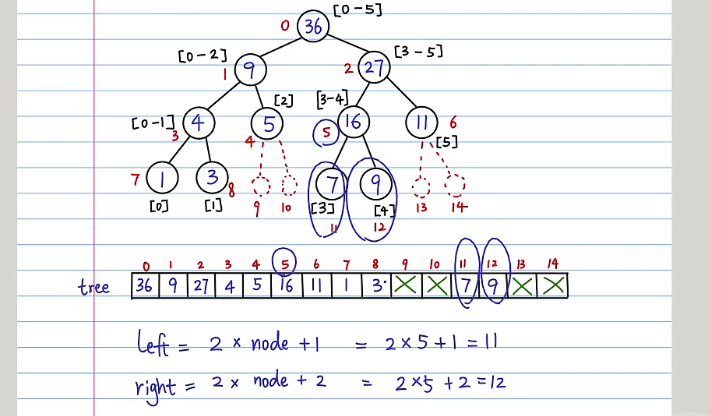 0 36 [0-5]
[0-2] 1 9 2 27 [3-5]
[0-1] 3 4 4 5 [2] [3-4] 5 16 11 6 [5]
7 1 [0] 3 8 [1] 9 10 7 [3] 11 9 [4] 12 13 14
0 1 2 3 4 5 6 7 8 9 10 11 12 13 14
tree 36 9 27 4 5 16 11 1 3 X X 7 9 X X
left = 2 × node + 1 = 2×5+1 = 11
right = 2 × node + 2 = 2×5+2 = 12